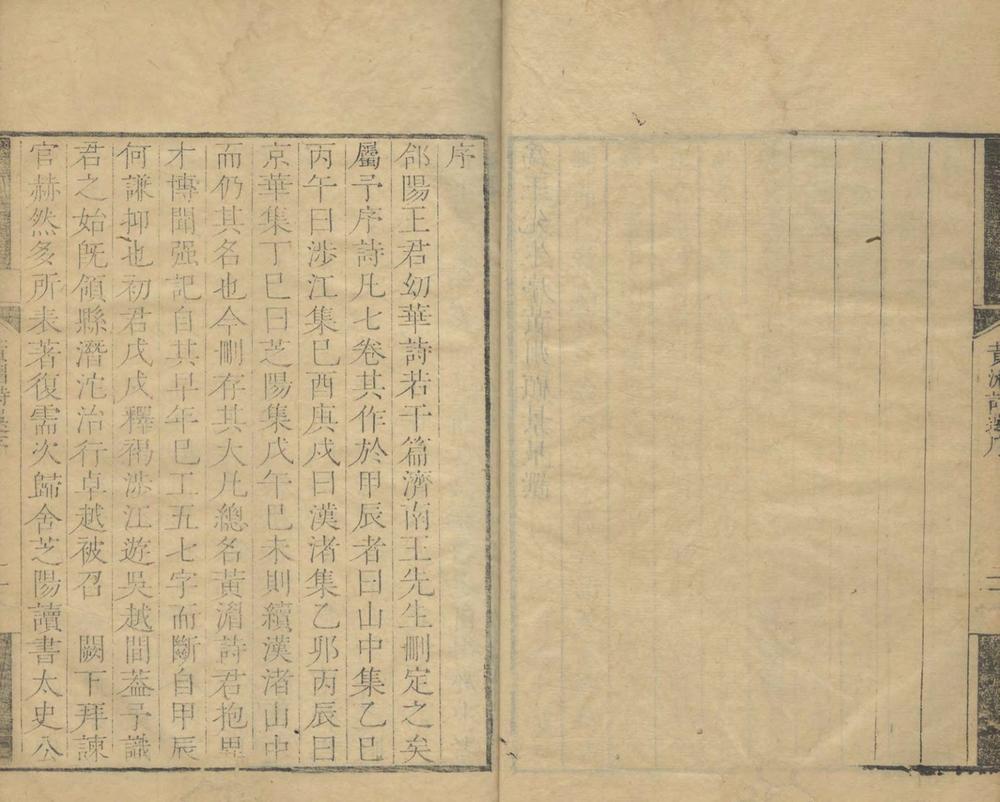 黄湄詩選序
二
序
郃陽王君幼華詩若干篇濟南王先生刪定之矣
屬予序詩凡七卷其作於甲辰者曰山中集乙巳
丙午曰涉江集巳酉庚戍曰漢渚集乙卯丙辰曰
京華集丁巳曰芝陽集戊午巳未則續漢渚山中
而仍其名也今刪存其大凡總名黃湄詩君抱異
才博聞强記自其早年巳工五七字而斷自甲辰
何謙抑也初君戊戍釋褐涉江遊吳越間葢予識
君之始旣領縣潛沱治行卓越被召　闕下拜諫
官赫然多所表著復需次歸舍芝陽讀書太史公